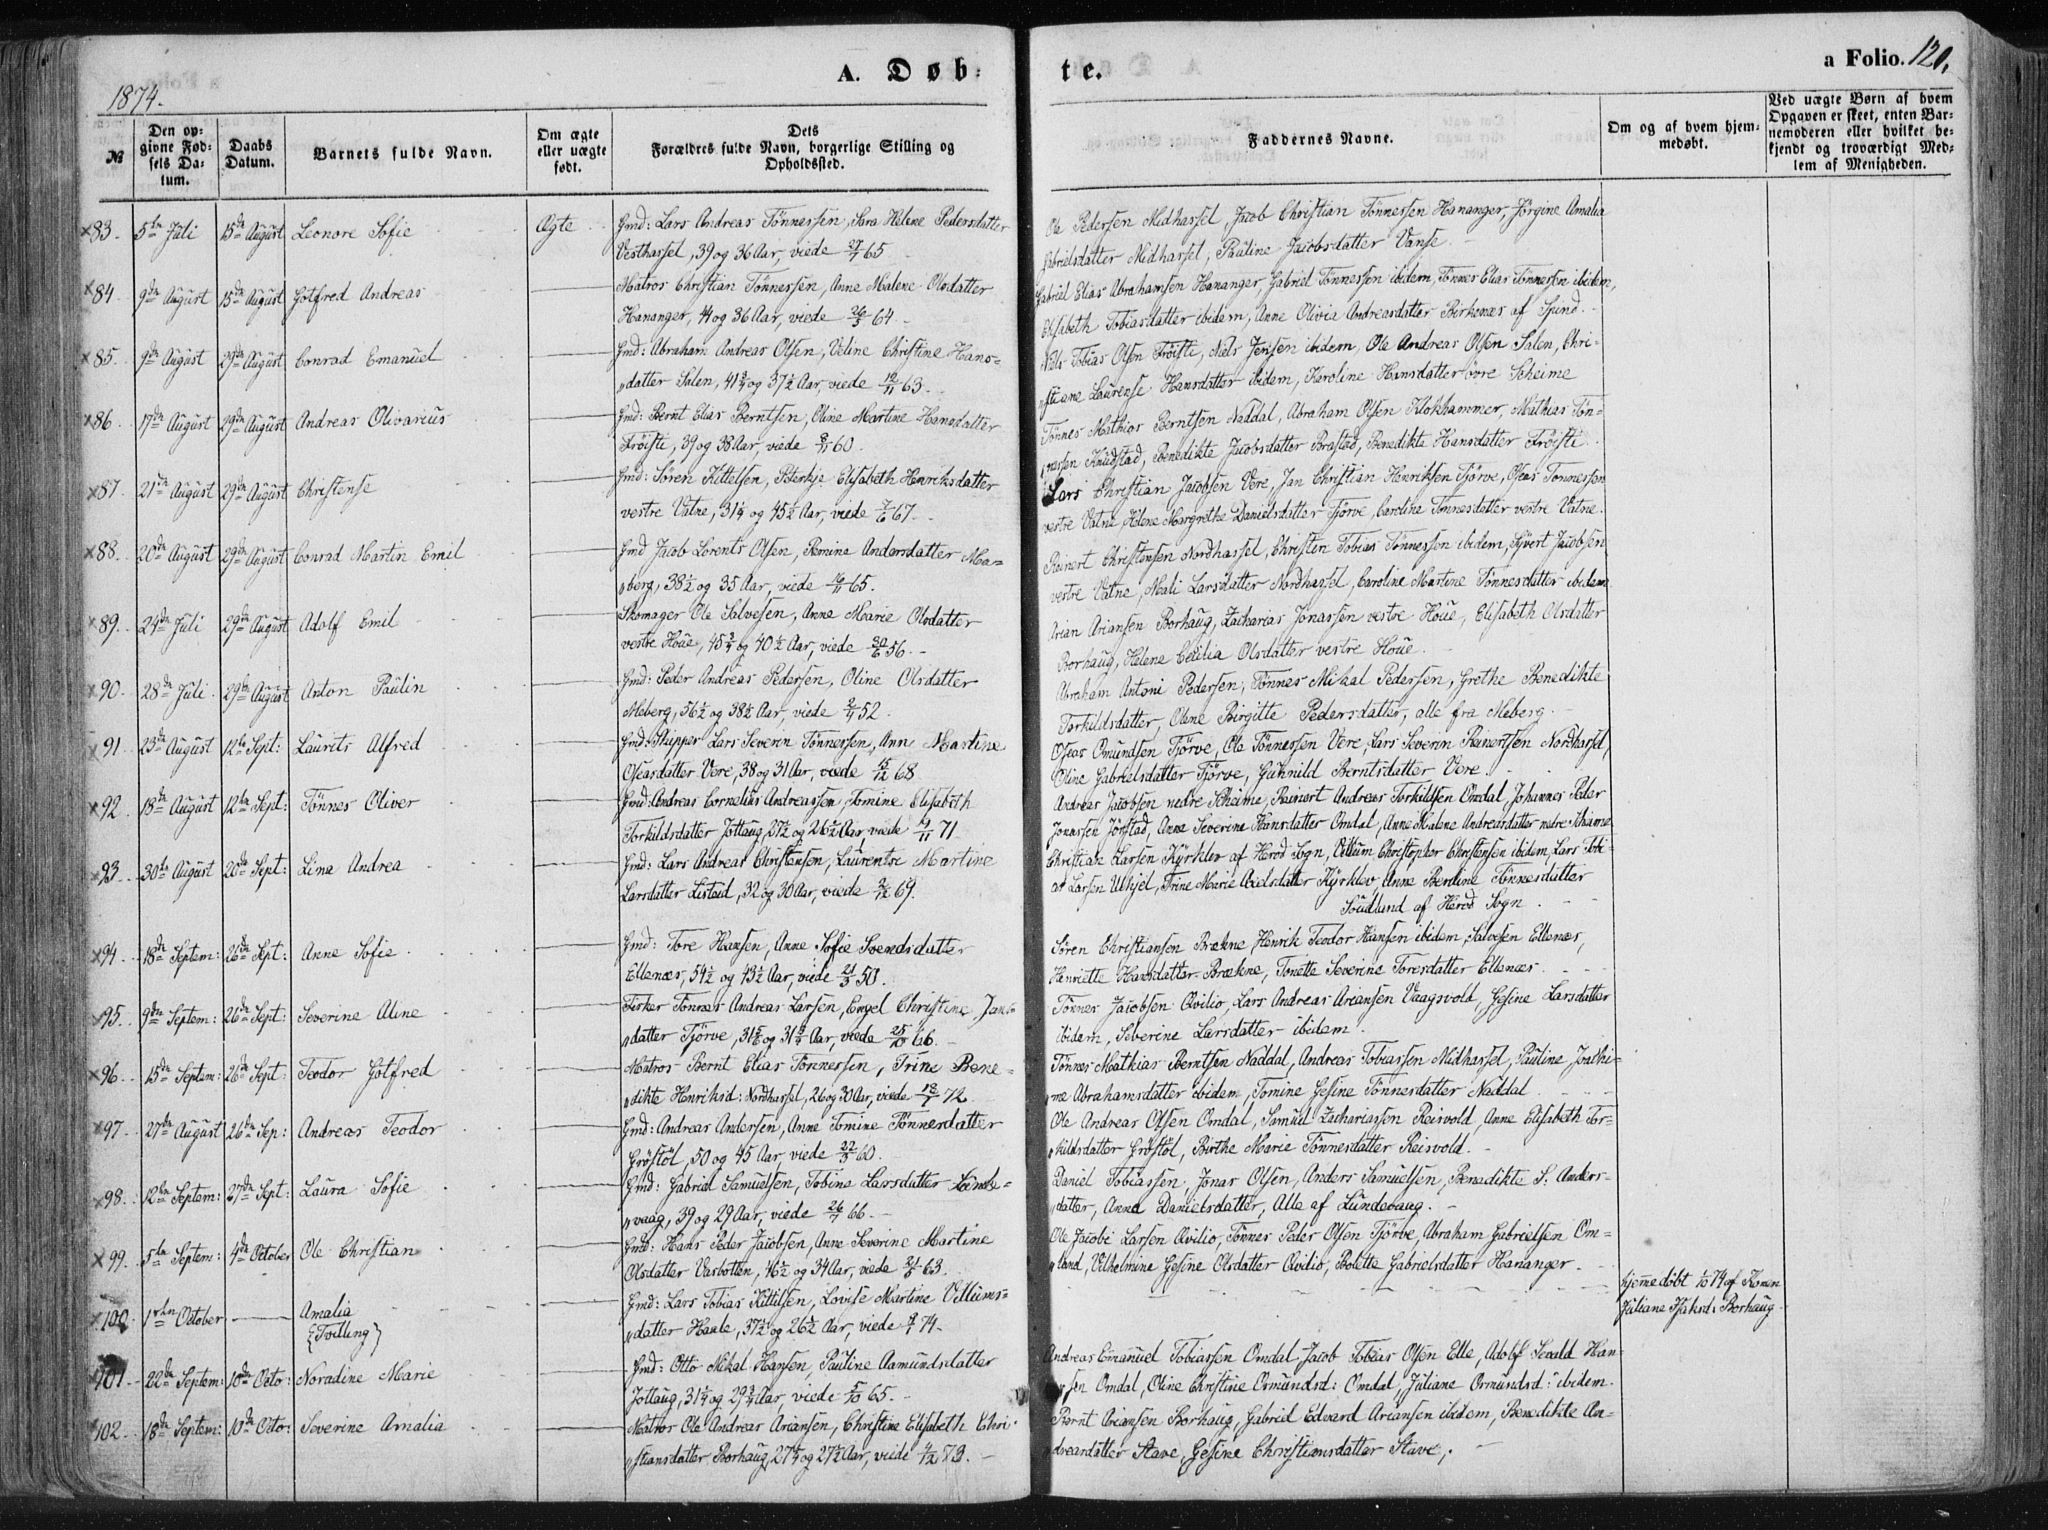 1874.
A. Døb-
te.
a Folio. 120.
№
Den opgivne Fødsels Datum.
Daabs Datum.
Barnets fulde Navn.
Om ægte eller uægte født.
Dets Forældres fulde Navn, borgerlige Stilling og Opholdssted.
Faddernes Navne.
Om og af hvem hjemmedøbt.
Ved uægte Børn af hvem Opgaven er skeet, enten Barnemoderen eller hvilket bekjendt og troværdigt Medlem af Menigheden.
83. 5te Juli 15de August Leonore Sofie Ægte Gmd: Lars Andreas Tönnessen, Sara Helene Pedersdatter
Vesthassel, 39 og 36 Aar, viede 27/7 65
Ole Pedersen Midhassel, Jacob Christian Tönnessen Hananger, Jörgine Amalia
Gabrielsdatter Midhassel, Pauline Jacobsdatter Vanse.
84. 9de August 15de August Gotfred Andreas Matros Christian Tönnessen, Anne Malene Olsdatter
Hananger, 44 og 36 Aar, viede 26/5 64
Gabriel Elias Abrahamsen Hananger, Gabriel Tönnessen ibidem, Tönnes Elias Tönnessen ibidem,
Elisabeth Tobiasdatter ibidem, Anne Olivia Andreasdatter Birkenæs af Spind.
85. 9de August 29de August Conrad Emanuel Gmd: Abraham Andreas Olsen, Veline Christine Hans-
datter Salen, 41 3/4 og 37 1/2 Aar, viede 19/11 63
Niels Tobias Olsen Fröiste, Niels Jensen ibidem, Ole Andreas Olsen Salen, Chri-
stiane Laurense Hansdatter ibidem, Karoline Hansdatter övre Scheime
86. 17de August 29de August Andreas Olivarius Gmd: Bernt Elias Berntsen, Oline Martine Hansdatter
Fröiste, 39 og 38 Aar, viede 8/11 60
Tönnes Mathias Berntsen Naddal, Abraham Olsen Klokhammer, Mathias Tön-
nessen Knudstad, Benedikte Jacobsdatter Brastad, Benedikte Hansdatter Fröiste
87. 21de August 29de August Christense Gmd: Sören Kittelsen, Peterkje Elisabeth Henriksdatter
vestre Vatne, 31 1/4 og 45 1/2 Aar, viede 7/6 67
Lars Christian Jacobsen Vere, Jan Christian Henriksen Tjörve, Oseas Tönnessen
vestre Vatne, Helene Margrethe Danielsdatter Tjörve, Caroline Tönnesdatter vestre Vatne.
88. 20de August 29de August Conrad Martin Emil Gmd Jacob Lorents Olsen, Remine Andersdatter Me-
berg, 38 1/2 og 35 Aar, viede 16/11 65.
Reinert Christensen Nordhassel, Christen Tobias Tönnessen ibidem, Syvert Jacobsen
vestre Vatne, Mali Larsdatter Nordhassel, Caroline Martine Tönnesdatter ibidem
89. 24de Juli 29de August Adolf Emil Skomager Ole Salvesen, Anne Marie Olsdatter
vestre Houe, 45 3/4 og 40 1/2 Aar, viede 30/6 56.
Arian Ariansen Borhaug, Zacharias Jonassen vestre Houe, Elisabeth Olsdatter
Borhaug, Helene Cecilia Olsdatter vestre Houe.
90. 28de Juli 29de August Anton Paulin Gmd: Peder Andreas Pedersen, Oline Olsdatter
Meberg, 56 1/2 og 38 1/2 Aar, viede 2/11 52.
Abraham Antoni Pedersen, Tönnes Mikal Pedersen, Grethe Benedikte
Torkildsdatter, Olene Birgitte Pedersdatter, alle fra Meberg.
91. 23de August 12te Sept: Laurits Alfred Gmd: Skipper Lars Severin Tönnessen, Ann Martine
Oseasdatter Vere, 38 og 31 Aar, viede 15/12 68
Oseas Omundsen Tjörve, Ole Tönnessen Vere, Lars Severin Reinertsen Nordhassel,
Oline Gabrielsdatter Tjörve, Gunnild Berntsdatter Vere.
92. 18de August 12te Sept: Tönnes Oliver Gmd: Andreas Cornelius Andreassen, Tomine Elisabeth
Torkildsdatter Jöllaug, 27 1/2 og 26 1/2 Aar, viede 19/11 71
Andreas Jacobsen nedre Scheime, Reinert Andreas Torkildsen Omdal, Johannes Peder
Jonassen Jörstad, Anne Severine Hansdatter Omdal, Anne Malene Andreasdatter nedre Scheime
93. 30te August 20de Sept: Lina Andrea Gmd: Lars Andreas Christensen, Laurentse Martine
Larsdatter Listeid, 32 og 30 Aar, viede 2/12 69.
Christian Larsen Kyrklev af Herod Sogn, Villum Christopher Christensen ibidem, Lars Tobi-
as Larsen Ulhjel, Trine Marie Axelsdatter Kyrklev, Anne Berdine Tönnesdatter
Soudland af Herod Sogn
94. 18de Septem: 26de Sept: Anne Sofie Gmd: Tore Hansen, Anne Sofie Svendsdatter
Ellenæs, 54 1/2 og 43 1/2 Aar, viede 21/3 50.
Sören Christiansen Brækne, Henrik Teodor Hansen ibidem, Salvesen Ellenæs,
Henriette Hansdatter Brækne, Tonette Severine Toresdatter Ellenæs
95. 9de Septem: 26de Sept: Severine Aline Fisker Tönnes Andreas Larsen, Engel Christine Jans-
datter Tjörve, 31 5/6 og 31 3/4 Aar, viede 25/10 66.
Tönnes Jacobsen Qvilio, Lars Andreas Ariansen Vaagsvold, Gesine Larsdatter
ibidem, Severine Larsdatter ibidem.
96. 15de Septem: 26de Sept: Teodor Gotfred Matros Bernt Elias Tönnessen, Trine Bene-
dikte Henriksd: Nordhassel, 26 og 30 Aar, viede 18/7 72
Tönnes Mathias Berntsen Naddal, Andreas Tobiassen Midhassel, Pauline Joachi-
me Abrahamsdatter ibidem, Tomine Gesine Tönnesdatter Naddal
97. 27de August 26de Sep: Andreas Teodor Gmd: Andreas Andersen, Anne Tomine Tönnesdatter
Gröstöl, 50 og 45 Aar, viede 22/3 60.
Ole Andreas Olsen Omdal, Samuel Zachariassen Reisvold, Anne Elisabeth Tor-
kildsdatter Gröstöl, Birthe Marie Tönnesdatter Reisvold.
98. 12te Septem: 27de Sept: Laura Sofie Gmd: Gabriel Samuelsen, Tobine Larsdatter Lunde-
vaag, 39 og 29 Aar, viede 26/7 66.
Daniel Tobiassen, Jonas Olsen, Anders Samuelsen, Benedikte S. Anders-
datter, Anna Danielsdatter, Alle af Lundevaag.
99. 5te Septem: 4de October Ole Christian Gmd: Hans Peder Jacobsen, Anne Severine Martine
Olsdatter Vasbotten, 46 1/2 og 34 Aar, viede 2/5 63.
Ole Jacobi Larsen Qvilio, Tönnes Peder Olsen Tjörve, Abraham Gabrielsen Ome-
land, Vilhelmine Gesine Olsdatter Qvilio, Bolette Gabrielsdatter Hananger.
100. 1ste October Amalia
{Tvilling}
Gmd: Lars Tobias Kittilsen, Lovise Martine Villums-
datter Haale, 37 1/2 og 26 1/2 Aar, viede 9/1 74
hjemmedöbt 1/10 74 af Konen
Juliane Isaksd: Borhaug
101. 22de Septem: 10de Octo: Noradine Marie Gmd: Otto Mikal Hansen, Pauline Aamundsdatter
Jöllaug, 31 1/4 og 29 3/4 Aar, viede 5/10 65.
Andreas Emanuel Tobiassen Omdal, Jacob Tobias Olsen Elle, Adolf Sevald Han-
sen Omdal, Oline Christine Osmundsd: Omdal, Juliane Osmundsd: ibidem.
102. 18de Septem: 10de Octo: Severine Amalia Matros Ole Andreas Ariansen, Christine Elisabeth Chri-
stiansdatter Borhaug, 27 1/4 og 27 1/2 Aar, viede 4/12 73.
Bernt Ariansen Borhaug, Gabriel Edvard Ariansen ibidem, Benedikte An-
dreasdatter Stave, Gesine Christiansdatter Stave;